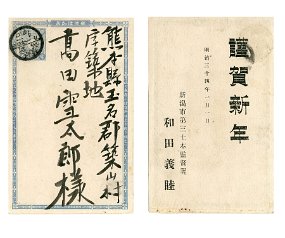 熊本縣玉名郡築山村
字築地
高田雪太郎様
謹賀新年
明治三十四年一月一日
新潟市第三十大區警署
和田義睦